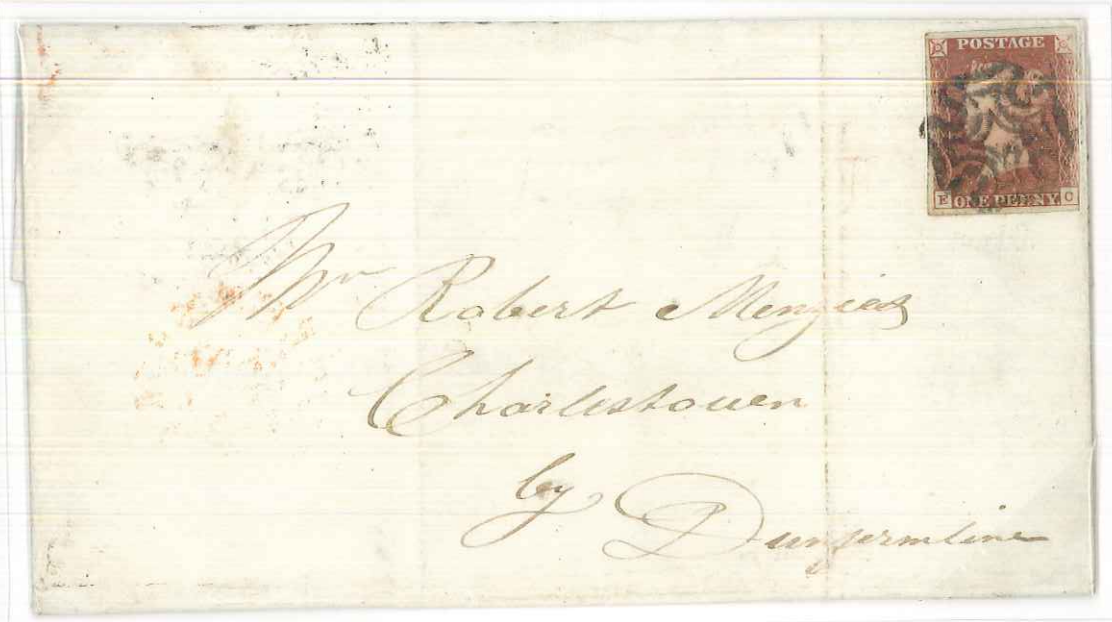 POSTAGE
E ONE PENNY C
Mr Robert Menzies
Charlestown
by
Dunfermline